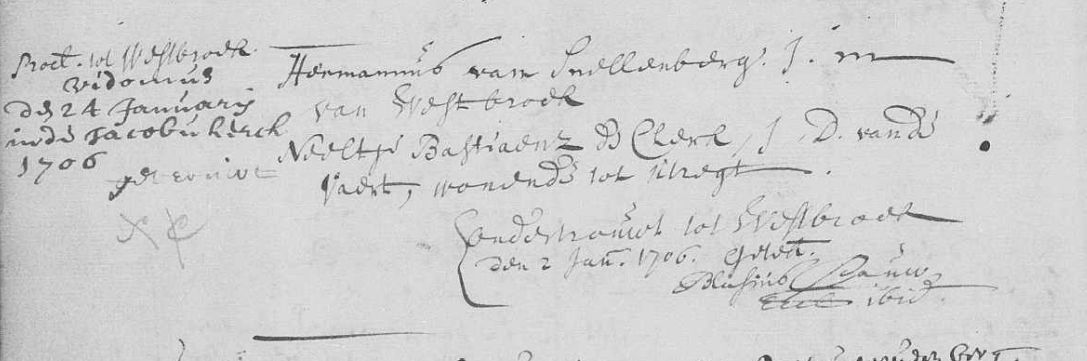 Proct. tot Westbroek.
vidomus
den 24 Januarij
in de Jacobi kerck
1706
getrouwt
Hermannus van Snellenberg. J. m
van Westbroek
Neeltje Bastiaenz de Clerck, J. D. van de
Vaert, wonende tot utregt.
ondertrouwt tot Westbroek
den 2 Jan. 1706. Getek.
Blasius Pauw
Eccl. ibid.